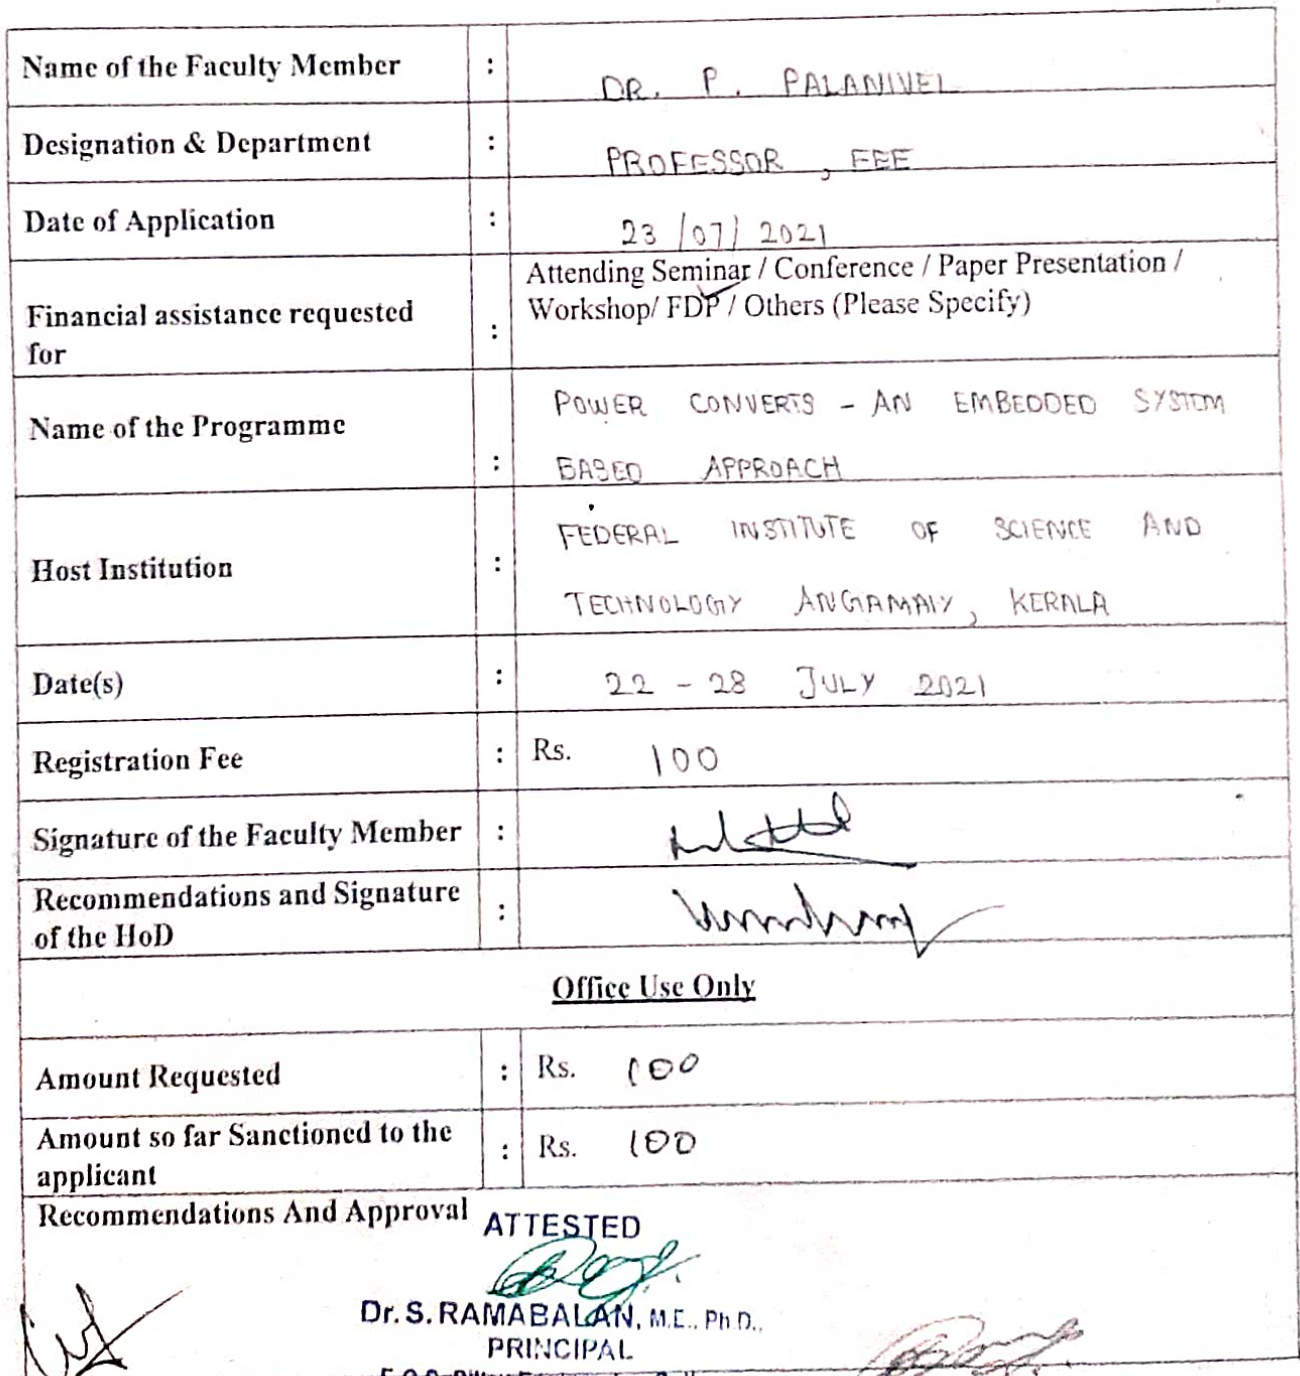 Name of the Faculty Member : DR. P. PALANIVEL
Designation & Department : PROFESSOR, EEE
Date of Application : 23/07/2021
Financial assistance requested for : Attending Seminar / Conference / Paper Presentation /
Workshop/ FDP / Others (Please Specify)
Name of the Programme : POWER CONVERTS - AN EMBEDDED SYSTEM
BASED APPROACH
Host Institution : FEDERAL INSTITUTE OF SCIENCE AND
TECHNOLOGY ANGAMALY, KERALA
Date(s) : 22 - 28 JULY 2021
Registration Fee : Rs. 100
Signature of the Faculty Member :
Recommendations and Signature
of the HoD :
Office Use Only
Amount Requested : Rs. 100
Amount so far Sanctioned to the
applicant : Rs. 100
Recommendations And Approval
ATTESTED
Dr. S. RAMABALAN, M.E., Ph.D.,
PRINCIPAL